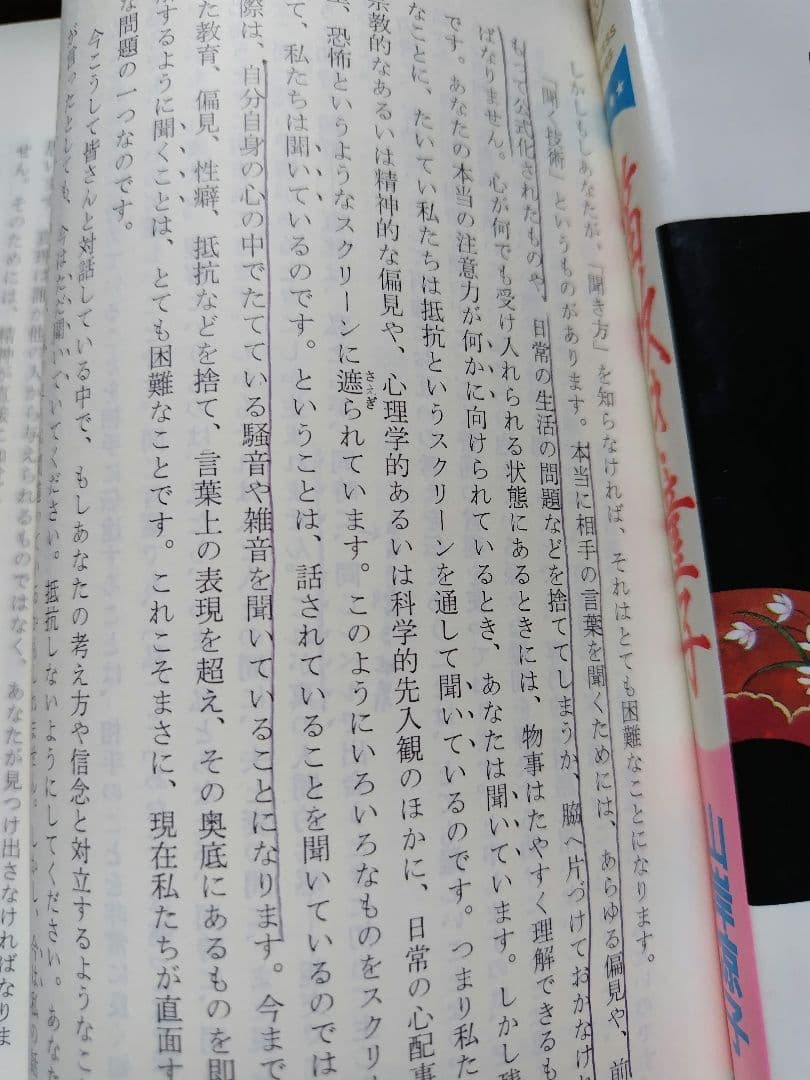 しかしもしあなたが、「聞き方」を知らなければ、それはとても困難なことになります。
「聞く技術」というものがあります。本当に相手の言葉を聞くためには、あらゆる偏見や、前
もって公式化されたものや、日常の生活の問題などを捨ててしまうか、脇へ片づけておかなけれ
ばなりません。心が何でも受け入れられる状態にあるときには、物事はたやすく理解できるも
です。あなたの本当の注意力が何かに向けられているとき、あなたは聞いています。しかし残
なことに、たいてい私たちは抵抗というスクリーンを通して聞いているのです。つまり私た
宗教的なあるいは精神的な偏見や、心理学的あるいは科学的先入観のほかに、日常の心配事
、恐怖というようなスクリーンに遮られています。このようにいろいろなものをスクリ
さえぎ
て、私たちは聞いているのです。ということは、話されていることを聞いているのでは
際は、自分自身の心の中でたてている騒音や雑音を聞いていることになります。今まで
た教育、偏見、性癖、抵抗などを捨て、言葉上の表現を超え、その奥底にあるものを即
するように聞くことは、とても困難なことです。これこそまさに、現在私たちが直面す
な問題の一つなのです。
今こうして皆さんと対話している中で、もしあなたの考え方や信念と対立するようなこ
が言ったとしても、今はただ聞いていてください。抵抗しないようにしてください。あなた
せん。そのためには、精神が
あなたが見つけ出さなければなりま